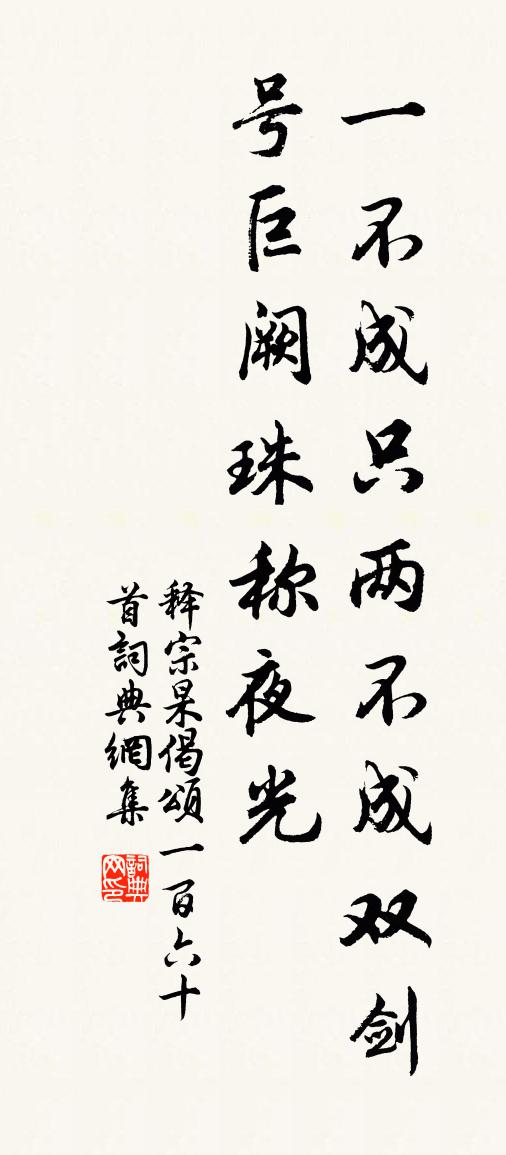 一不成只两不成双剑
号巨阙珠称夜光
释宗杲偈颂一百六十
首詞典網集
詞典网印